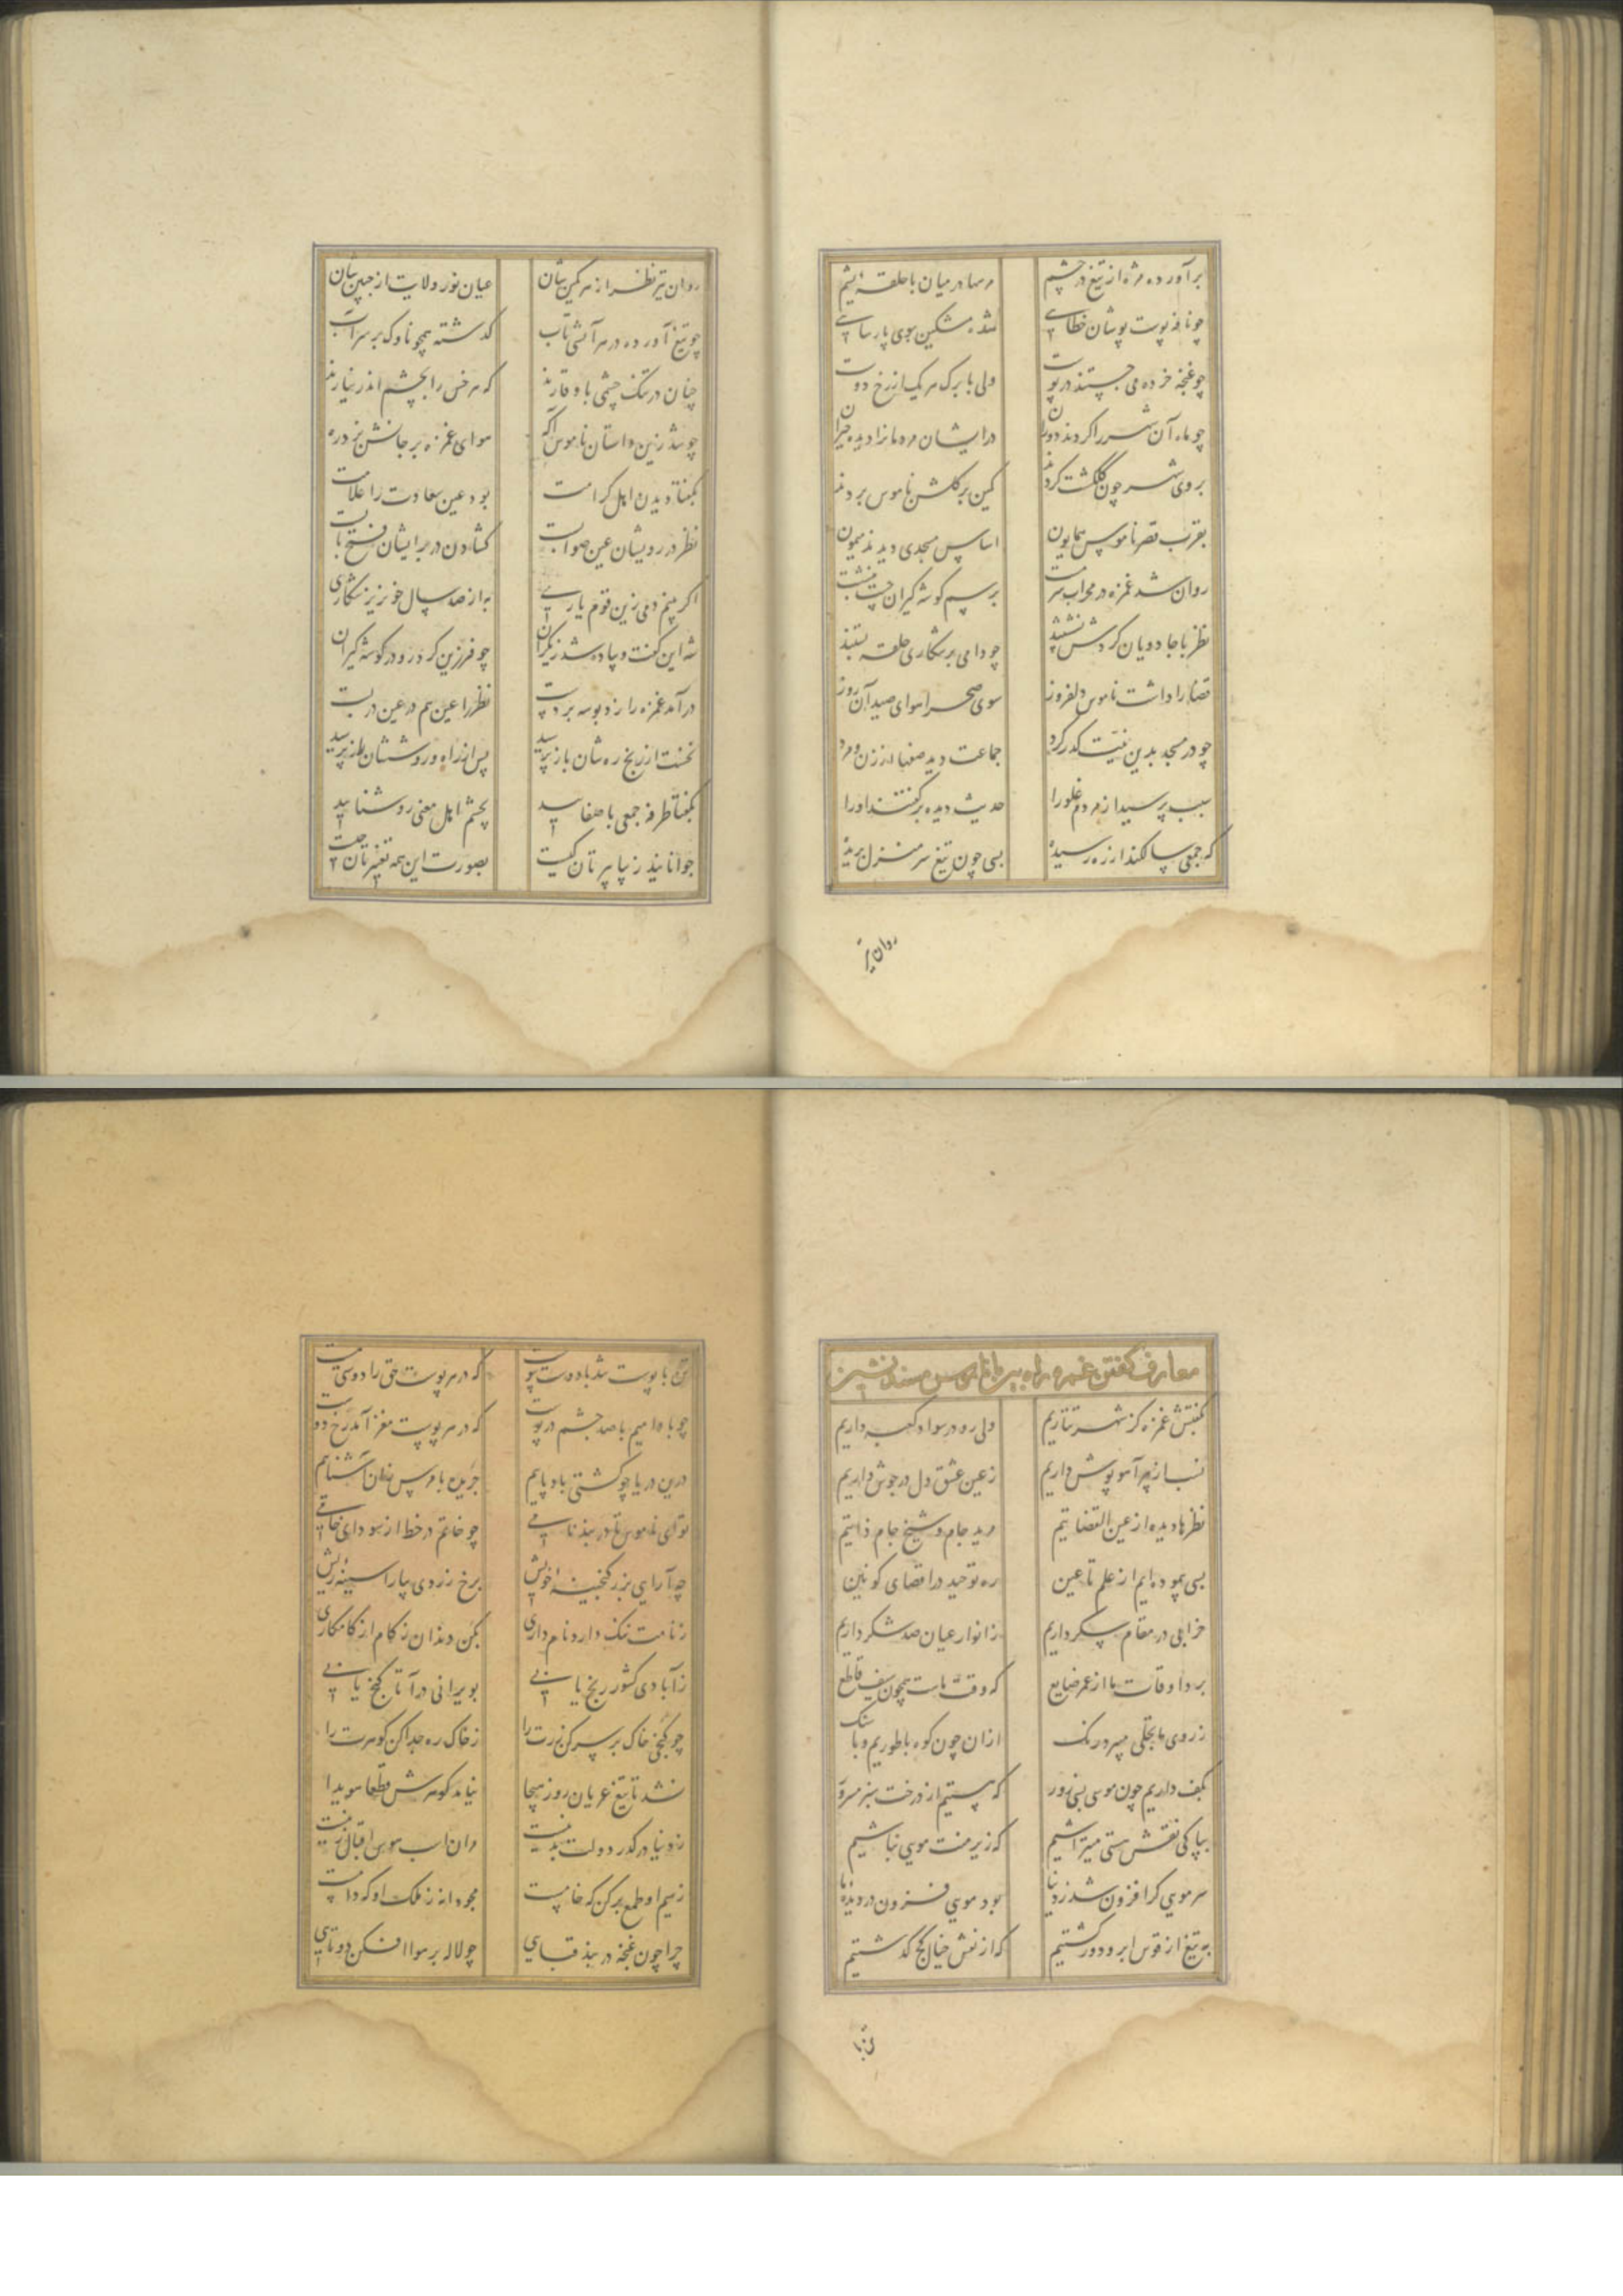 برآورده مژه از تیغ در چشم مرصها در میان با حلقه پشم
چو نافه پوست پوشان خطایی شده مشکین بوی پارسایی
چو غنچه خرده می‌جستند در پوست ولی با برک هر یک از رخ دوست
چو ماه آن شهر را کردند دوران در ایشان مردمانرا دیده حیران
بروی شهر چون گلگشت کردند کمین بر گلشن ناموس بردند
بقرب قصر ناموس همایون اساس مسجدی دیدند میمون
روان شد غمزه در محراب برسم کوشه گیران
نظر با جادویان کردش نشستند چو دامی بر شکاری حلقه بستند
قضا را داشت ناموس دلفروز سوی صحرا هوای صید آن روز
چو در مسجد بدین نیت گذر کرد جماعت دید صفها از زن و مرد
سبب پرسید از مردم غلو را حدیث دیده برگفتند او را
که جمعی سالکند از ره رسیده بسی چون تیغ سر منزل بریده
روان تیر
روان تیر نظر از هر کمین شان عیان نور ولایت از جبین شان
چو تیغ آورده در هر آتشی تاب گذشته همچو ناوک بر سر آب
چنان در تنک چشمی با وقارند که هر خس را بچشم اندر نیارند
چو شد زین داستان ناموس آگه هوای غمزه بر جانش بزد ره
بگفتا دیدن اهل کرامت بود عین سعادت را علامت
نظر در رویشان عین صوابست گشادن در بر ایشان فتح بابست
اگر بینم دمی زین قوم یاری به از صد سال خونریز شکاری
شه این گفت و پیاده شد ز یکران چو فرزین کرد رو در کوشه گیران
درآمد غمزه را زد بوسه بر دست نظر را عین هم در عین دربست
نخست از رنج ره شان باز پرسید پس از راه و روششان راز پرسید
بگفتا طرفه جمعی با صفایید بچشم اهل معنی روشنایید
جوانانید زیبا پیرتان کیست بصورت این همه تغییرتان چیست
معارف گفتن غمزه راه بین با ناموس مسند نشین
بگفتش غمزه کز شهر تتاریم ولی رو در سواد کعبه داریم
نسب از پیر آهو پوش داریم ز عین عشق دل در جوش داریم
نظرها دیده از عین القضاتیم مرید جام و شیخ جام ذاتیم
بسی پیموده‌ایم از علم تا عین ره توحید در اقصای کونین
خرابی در مقام سکر داریم ز انوار عیان صد شکر داریم
برد اوقات ما از عمر ضایع که وقت ماست همچون سیف قاطع
ز روی ما تجلی میبرد رنک ازان چون کوه با طوریم و با سنک
بکف داریم چون موسی بنی نور که هستیم از درخت سبز مسرور
بپاکی نقش هستی میتراشیم که زیر منت مویی نباشیم
سر مویی کرا افزون شد ز دنیا بود مویی فزون در دیده ما
به تیغ از قوس ابرو دور گشتیم که از نقش خیال کج گذشتیم
تن با
تن با پوست شد با دوست پوست که در هر پوست حق را دوستی هست
چو بادامیم با صد چشم در پوست که در هر پوست مغز آمد رخ دوست
درین دریا چو کشتی باد پاییم جریده با هر کس زان آشناییم
تو ای ناموس تا در بند نامی چو خاتم در خط از سودای خامی
چه آرایی بزر گنجینه خویش برخ زردی بیارا سینه ریش
ز نامت ننک دارد نام داری بکن دندان ز کام از کامکاری
ز آبادی کشور رنج یابی بویرانی درآ تا گنج یابی
چو گنجی خاک بر سر کن زرت را ز خاک ره جدا کن گوهرت را
نشد تا تیغ عریان روز هیجا نیامد گوهرش قطعا هویدا
ز دنیا در گذر دولت بدین نیست
ز سیم او طمع برکن که خامست مجو دانه ز ملک او که دامست
چرا چون غنچه در بند قبایی چو لاله بر هوا افکن دوتایی